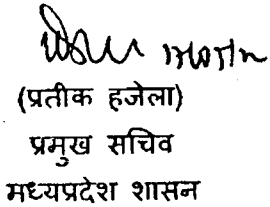 (प्रतीक हजेला)
प्रमुख सचिव
मध्यप्रदेश शासन